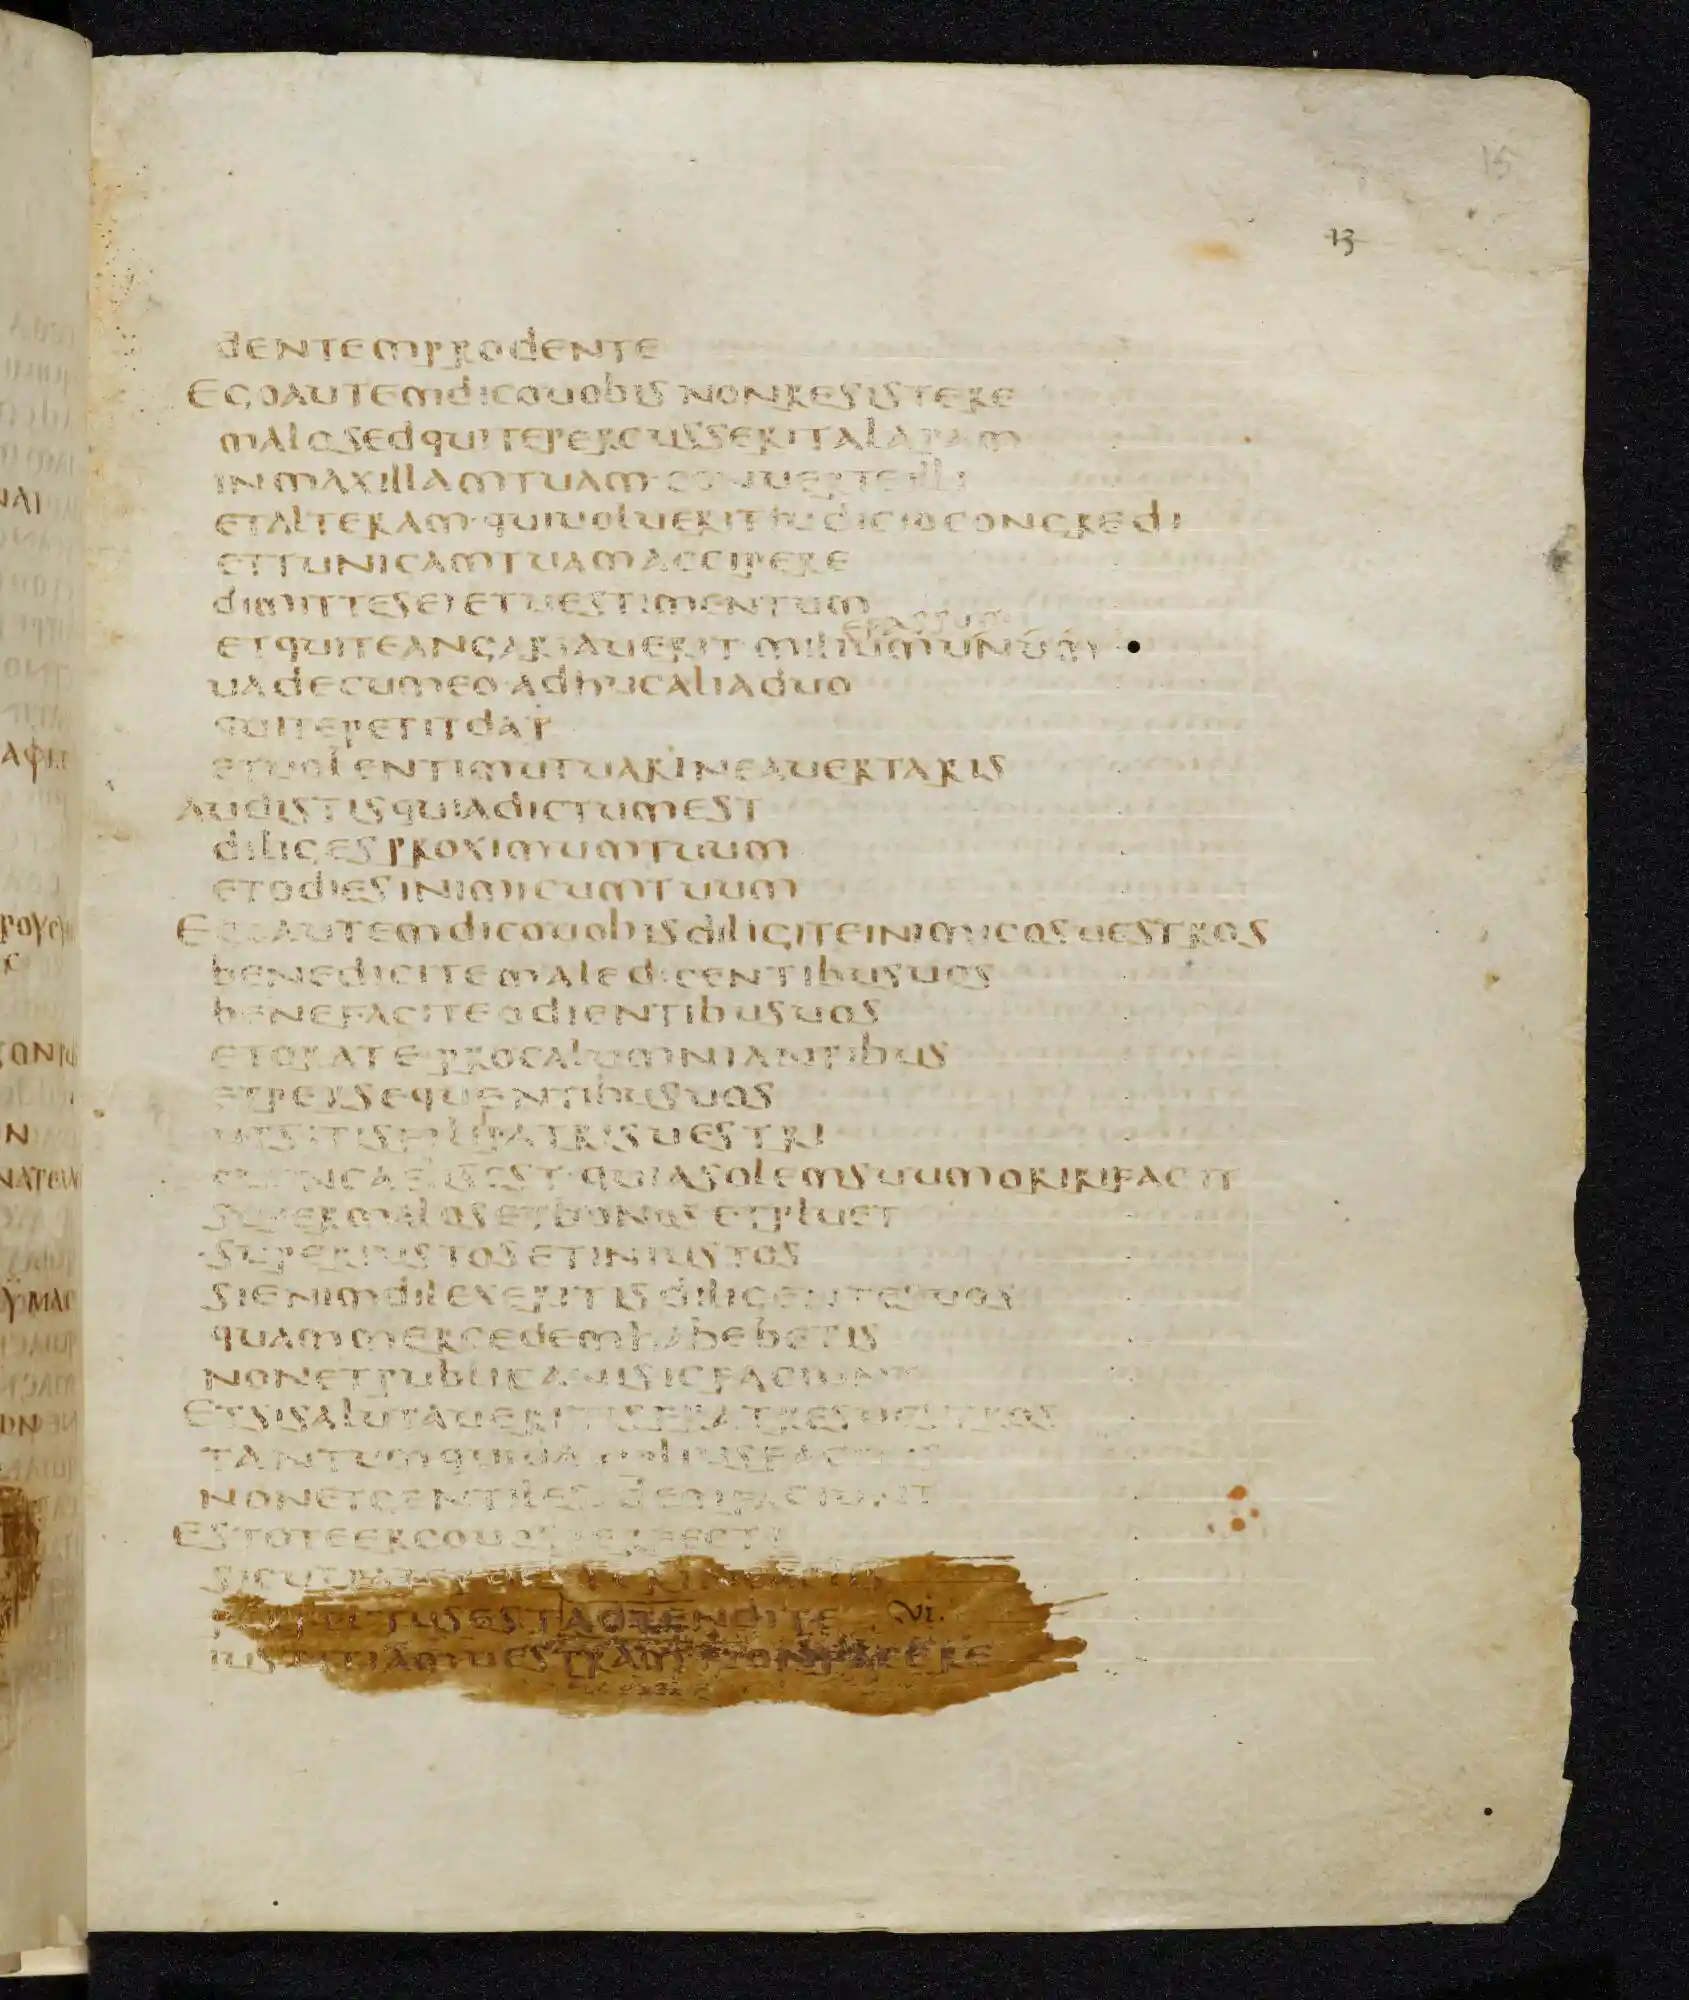 15
13
dentemprodente
Egoautemdicouobis nonresistere
malosedquiteperusseritalapam
inmaxillamtuam·conuerteilli
etalteram·quiuolueritiudiciocongredi
ettunicamtuamaccipere
dimittesei etuestimentum
etquiteangariauerit·miliumunum
uadecumeo·adhucaliaduo
quitepetitda
etuolentimutuari neauertaris
Audistisquiadictumest
diligesproximumtuum
etodiesinimicumtuum
Egoautemdicouobisdiligiteinimicosuestros
benedicitemaledicentibusuos
benefaciteodientibusuos
etorate·procalumniantibus
etpersequentibusuos
utsitisfilipatrisuestri
quiincaelisest·quiasolemsuumoririfacit
supermalosetbonosetpluet
superiustosetiniustos
sienimdilexeritisdiligentesuos
quammercedemhabebetis
nonetpublicanisicfaciunt
Etsisalutaueritisfratresuestros
tantum
nonetgentiles idemfaciunt
Estoteergouosperfecti
sicutpater
estadtendite vi.
iustitiamuestramnonfacere